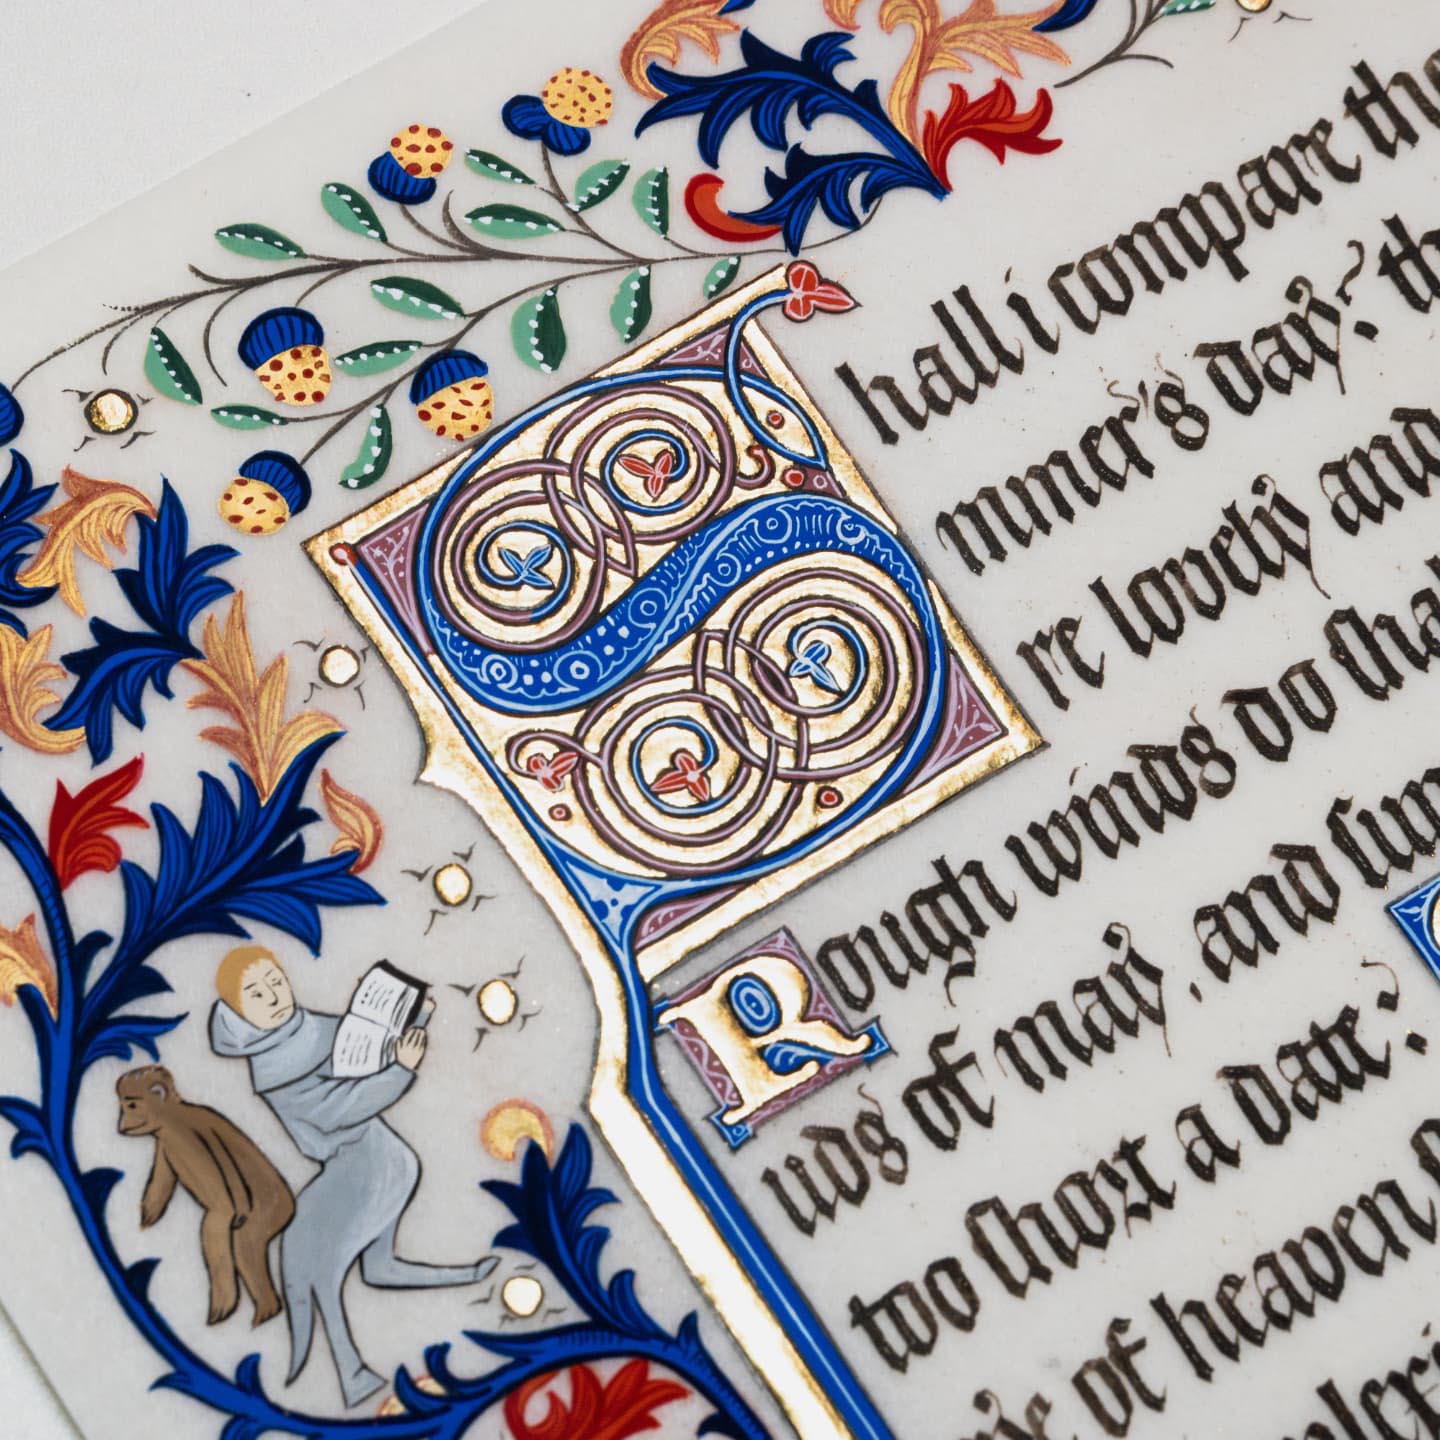 Shall i compare the
mmer's day? th
re lovely and
Rough winds do shak
uds of may, and sum
too short a date:
of heaven